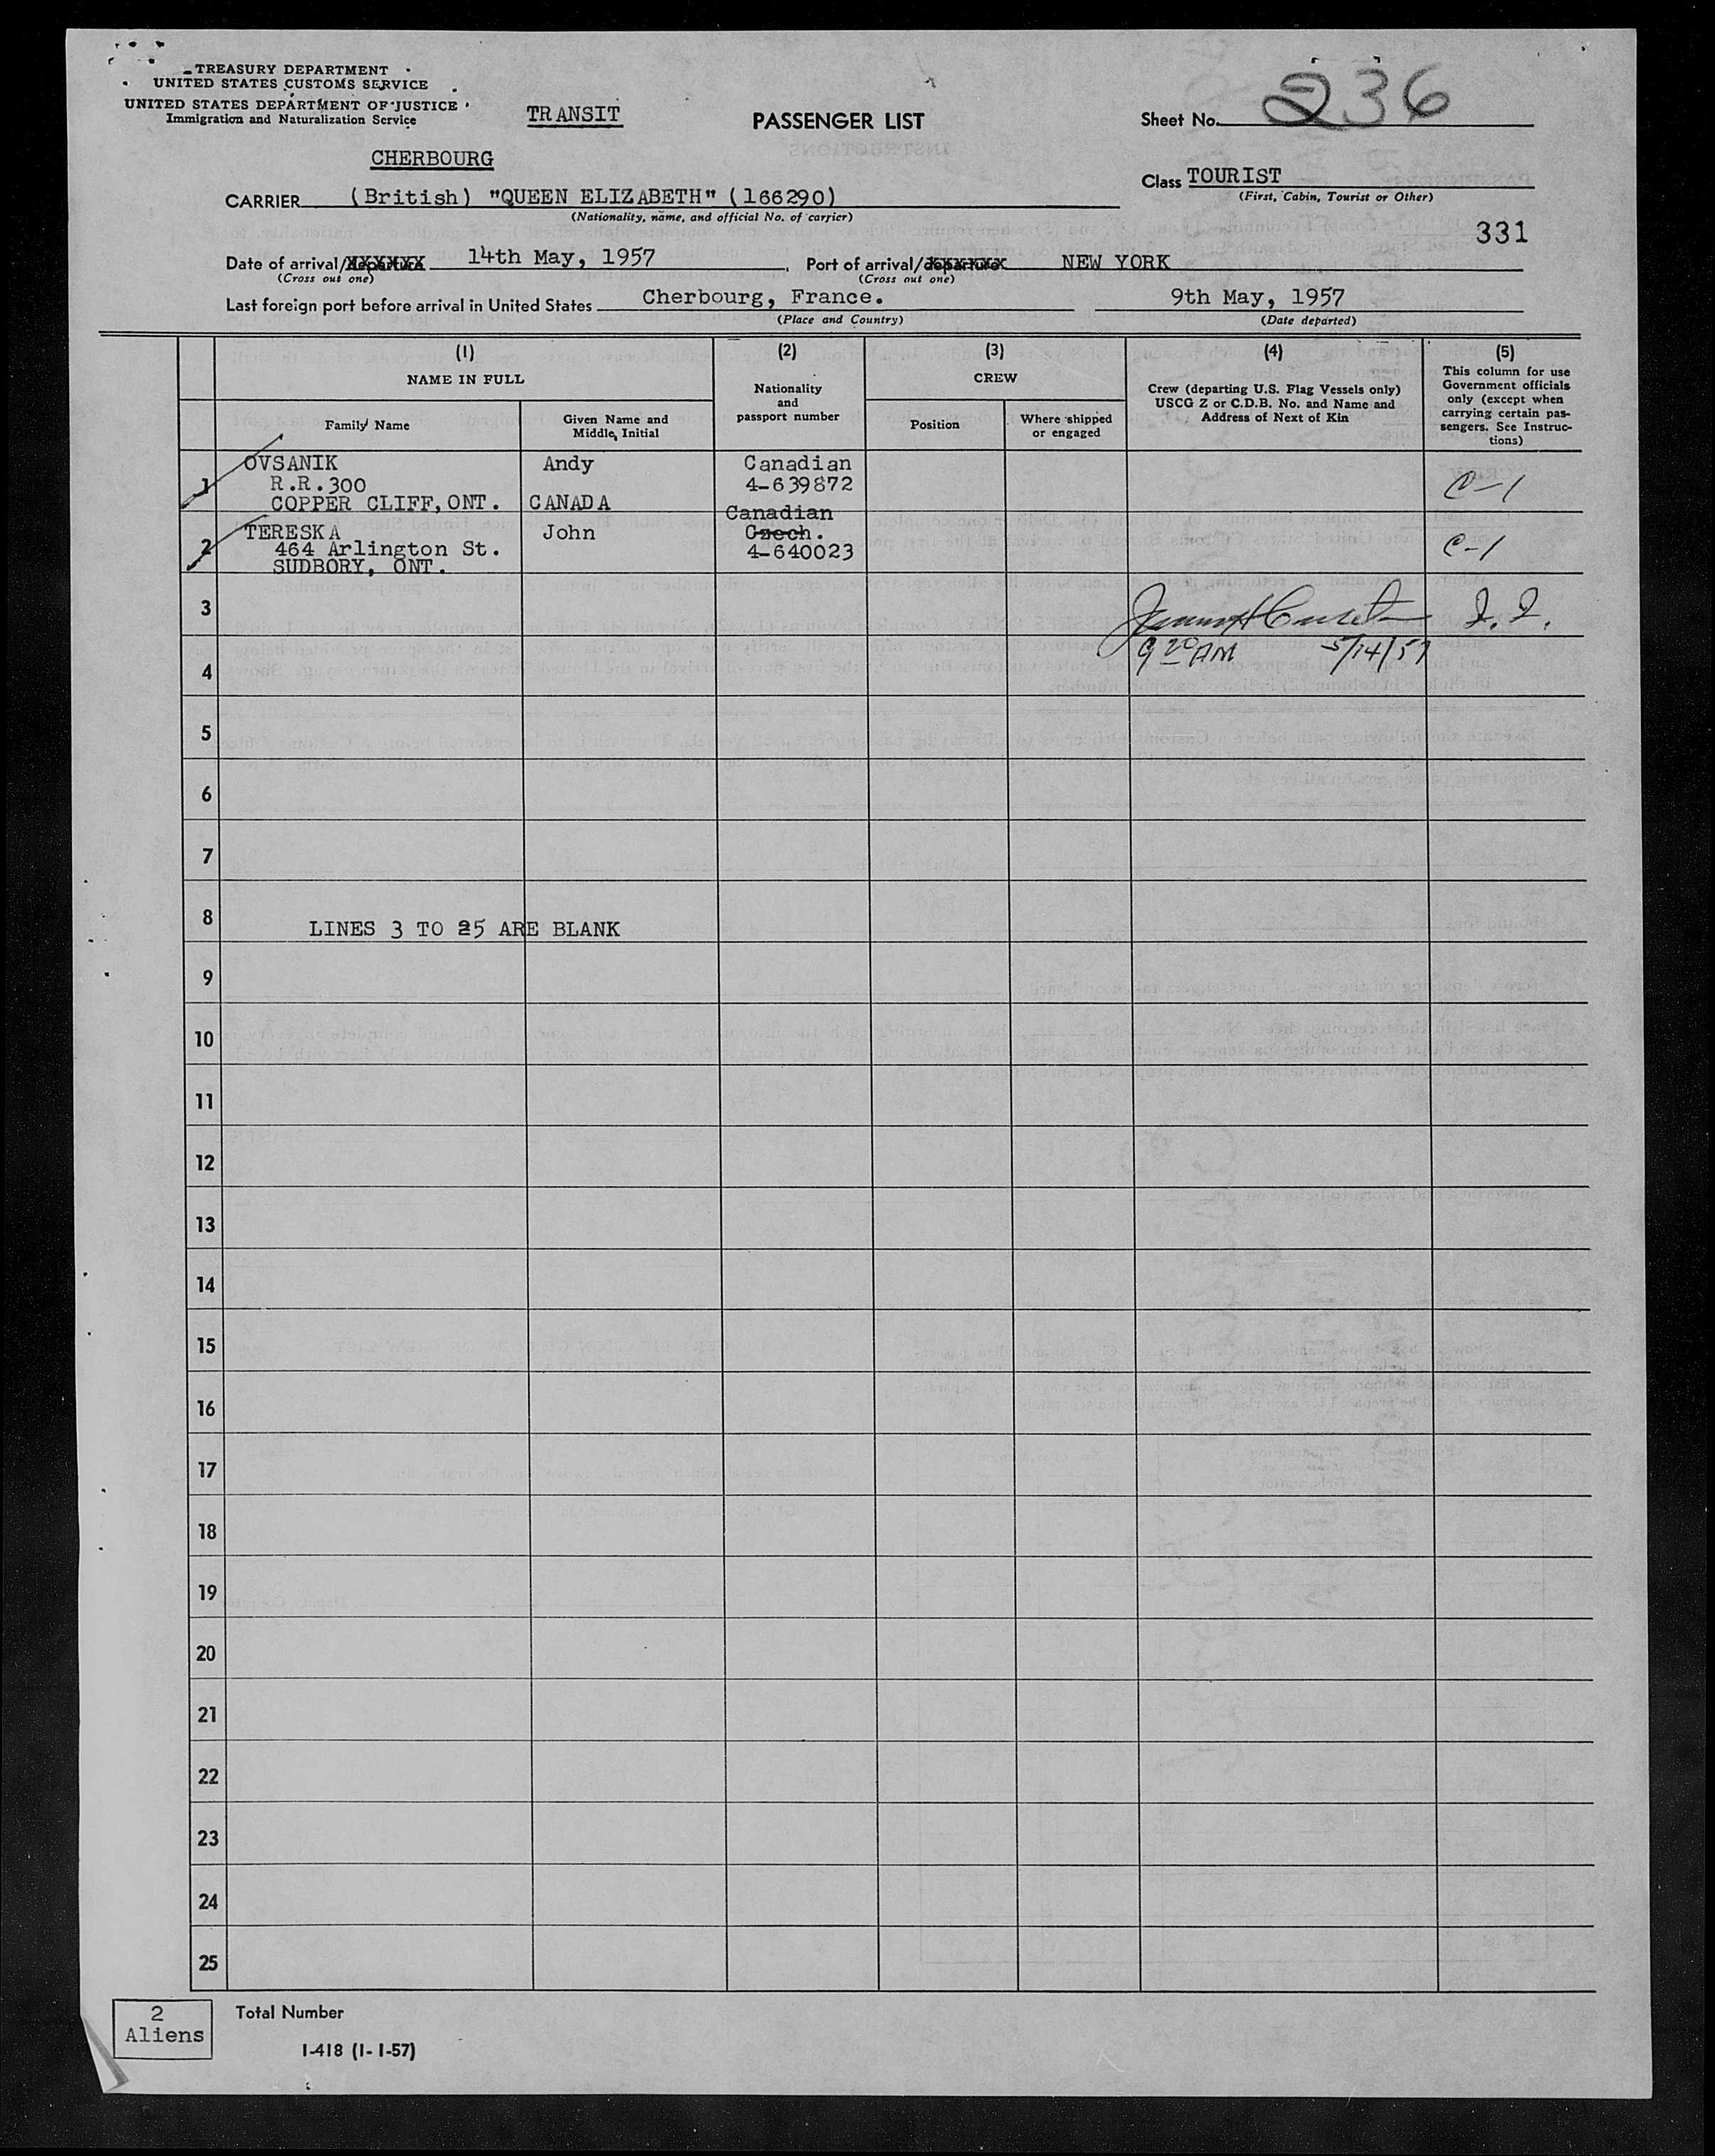 TREASURY DEPARTMENT
UNITED STATES CUSTOMS SERVICE
UNITED STATES DEPARTMENT OF JUSTICE
Immigration and Naturalization Service
TRANSIT
PASSENGER LIST
Sheet No. 236
CHERBOURG
CARRIER (British) "QUEEN ELIZABETH" (166290)
(Nationality, name, and official No. of carrier)
Class TOURIST
(First, Cabin, Tourist or Other)
331
Date of arrival/departure 14th May, 1957, Port of arrival/departure NEW YORK
(Cross out one) (Cross out one)
Last foreign port before arrival in United States Cherbourg, France. 9th May, 1957
(Place and Country) (Date departed)
(1)
NAME IN FULL
Family Name
Given Name and Middle Initial
(2)
Nationality
and
passport number
(3)
CREW
Position
Where shipped
or engaged
(4)
Crew (departing U.S. Flag Vessels only)
USCG Z or C.D.B. No. and Name and
Address of Next of Kin
(5)
This column for use
Government officials
only (except when
carrying certain pas-
sengers. See Instruc-
tions)
1 OVSANIK Andy Canadian
R.R.300 4-639872 C-1
COPPER CLIFF, ONT. CANADA
Canadian
2 TERESKA John Czech.
464 Arlington St. 4-640023 C-1
SUDBORY, ONT.
3
4 9 20 AM 5/14/57
5
6
7
8
LINES 3 TO 25 ARE BLANK
9
10
11
12
13
14
15
16
17
18
19
20
21
22
23
24
25
2
Aliens
Total Number
I-418 (1-1-57)